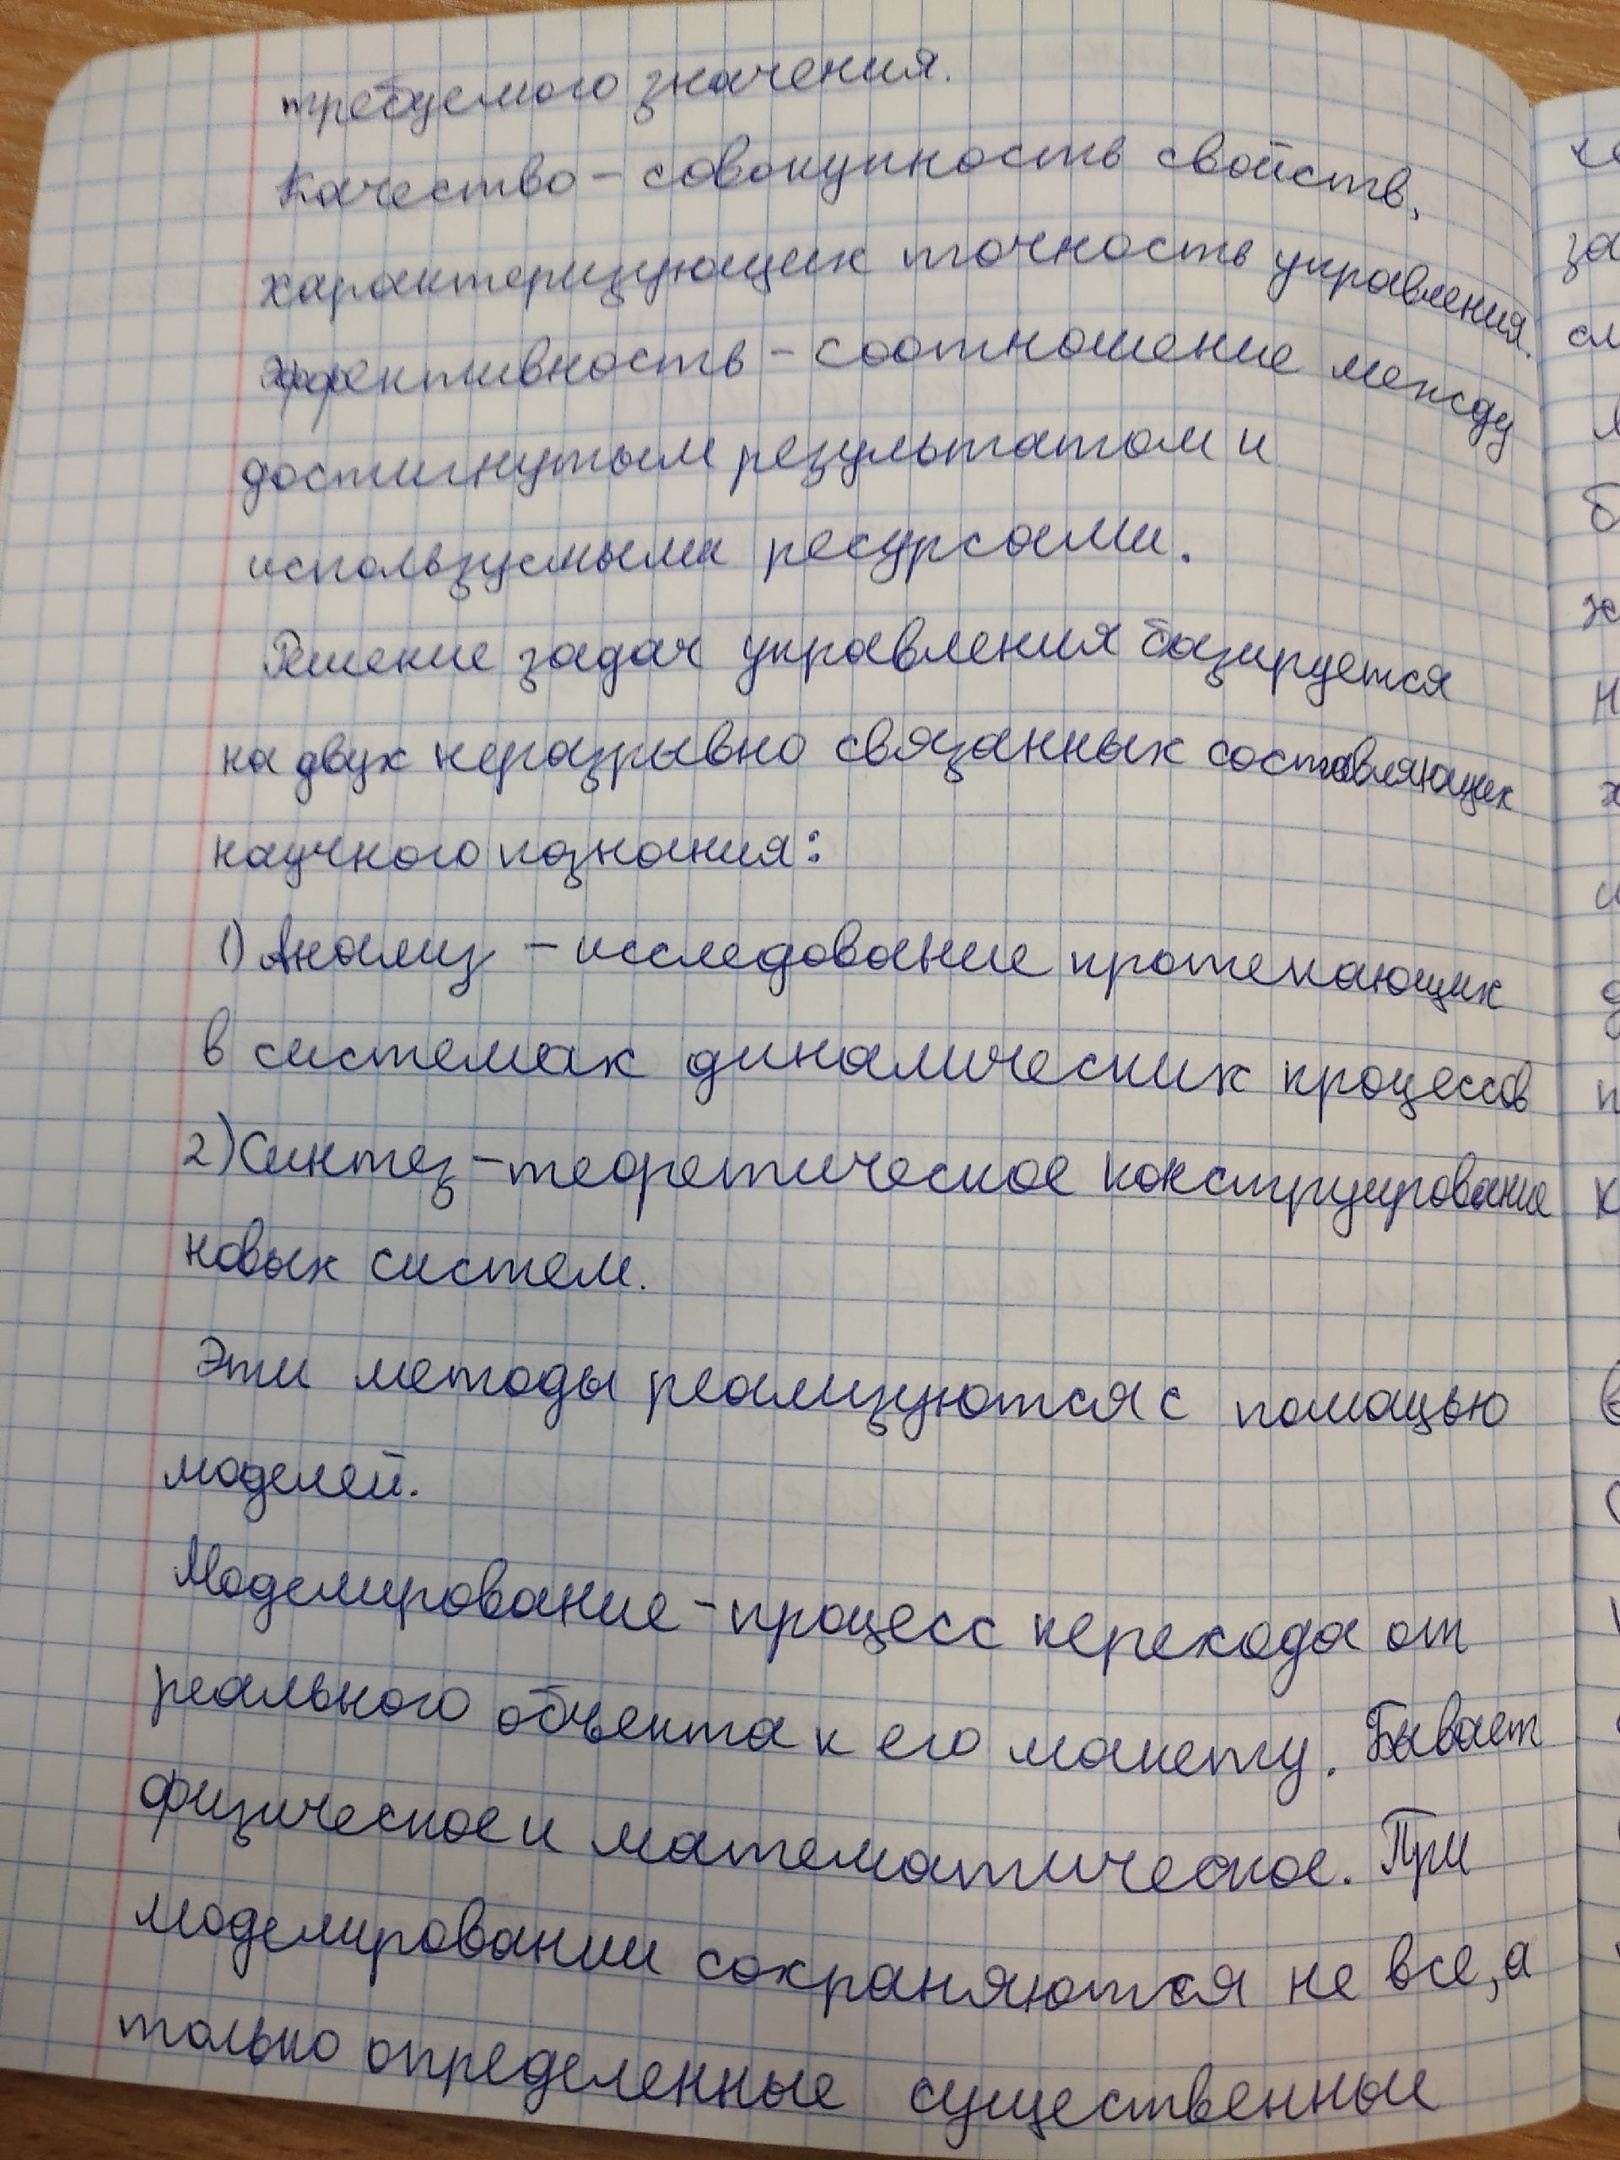 требуемого значения.
Качество – совокупность свойств,
характеризующих точность управления.
Эффективность – соотношение между
достигнутым результатом и
используемыми ресурсами.
Решение задач управления базируется
на двух неразрывно связанных составляющих
научного познания:
1) Анализ – исследование протекающих
в системах динамических процессов
2) Синтез – теоретическое конструирование
новых систем.
Эти методы реализуются с помощью
моделей.
Моделирование – процесс перехода от
реального объекта к его макету. Бывает
физическое и математическое. При
моделировании сохраняются не все, а
только определенные существенные